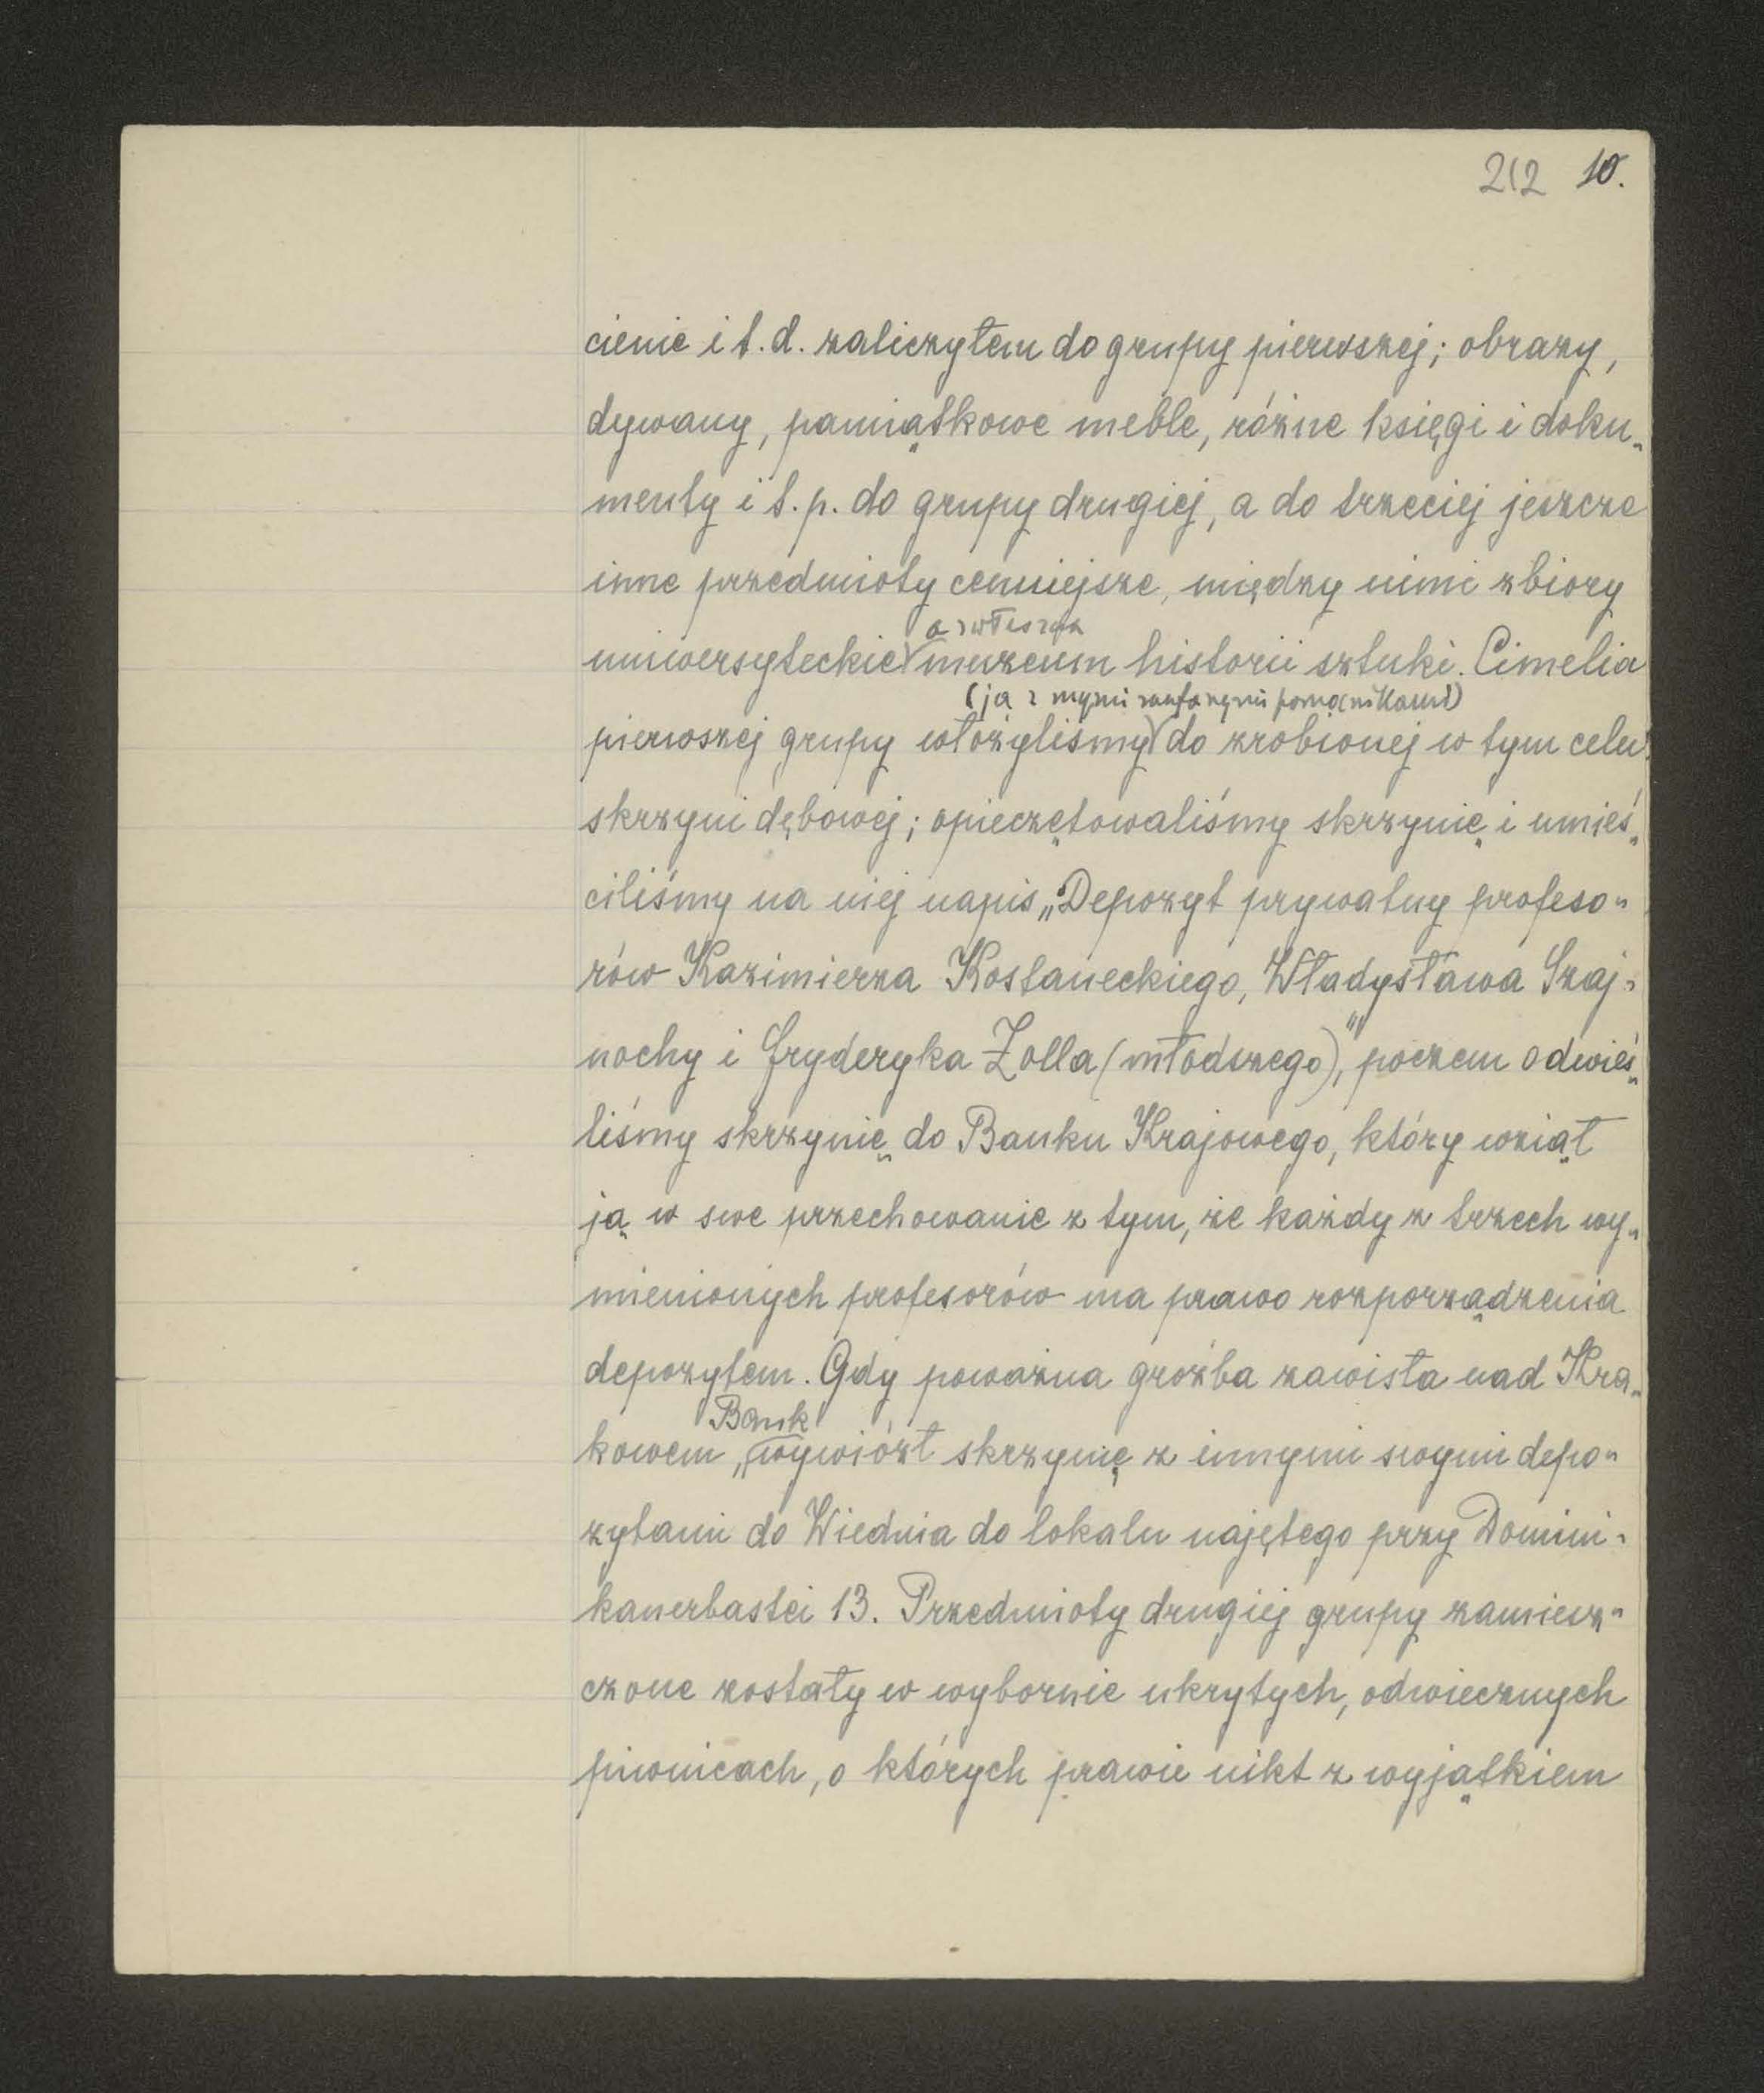 212 10.
cienie i t.d. zaliczyłem do grupy pierwszej; obrazy,
dywany, pamiątkowe meble, różne księgi i doku„
menty i t.p. do grupy drugiej, a do trzeciej jeszcze
inne przedmioty cenniejsze, między nimi zbiory
a zwłaszcza
uniwersyteckie muzeum historii sztuki. Cimelia
(ja z mymi zaufanymi pomocnikami)
pierwszej grupy włożyliśmy do zrobionej w tym celu
skrzyni dębowej; opieczętowaliśmy skrzynię i umieś„
ciliśmy na niej napis „Depozyt prywatny profeso„
rów Kazimierza Kostaneckiego, Władysława Szaj„
nochy i Fryderyka Zolla (młodszego)", poczem odwieź„
liśmy skrzynię do Banku Krajowego, który wziął
ją w swe przechowanie z tym, że każdy z trzech wy„
mienionych profesorów ma prawo rozporządzenia
depozytem. Gdy poważna groźba zawisła nad Kra„
Bank
kowem, wywiózł skrzynię z innymi swymi depo„
zytami do Wiednia do lokalu najętego przy Domini„
kanerbastei 13. Przedmioty drugiej grupy zamiesz„
czone zostały w wybornie ukrytych, odwiecznych
piwnicach, o których prawie nikt z wyjątkiem